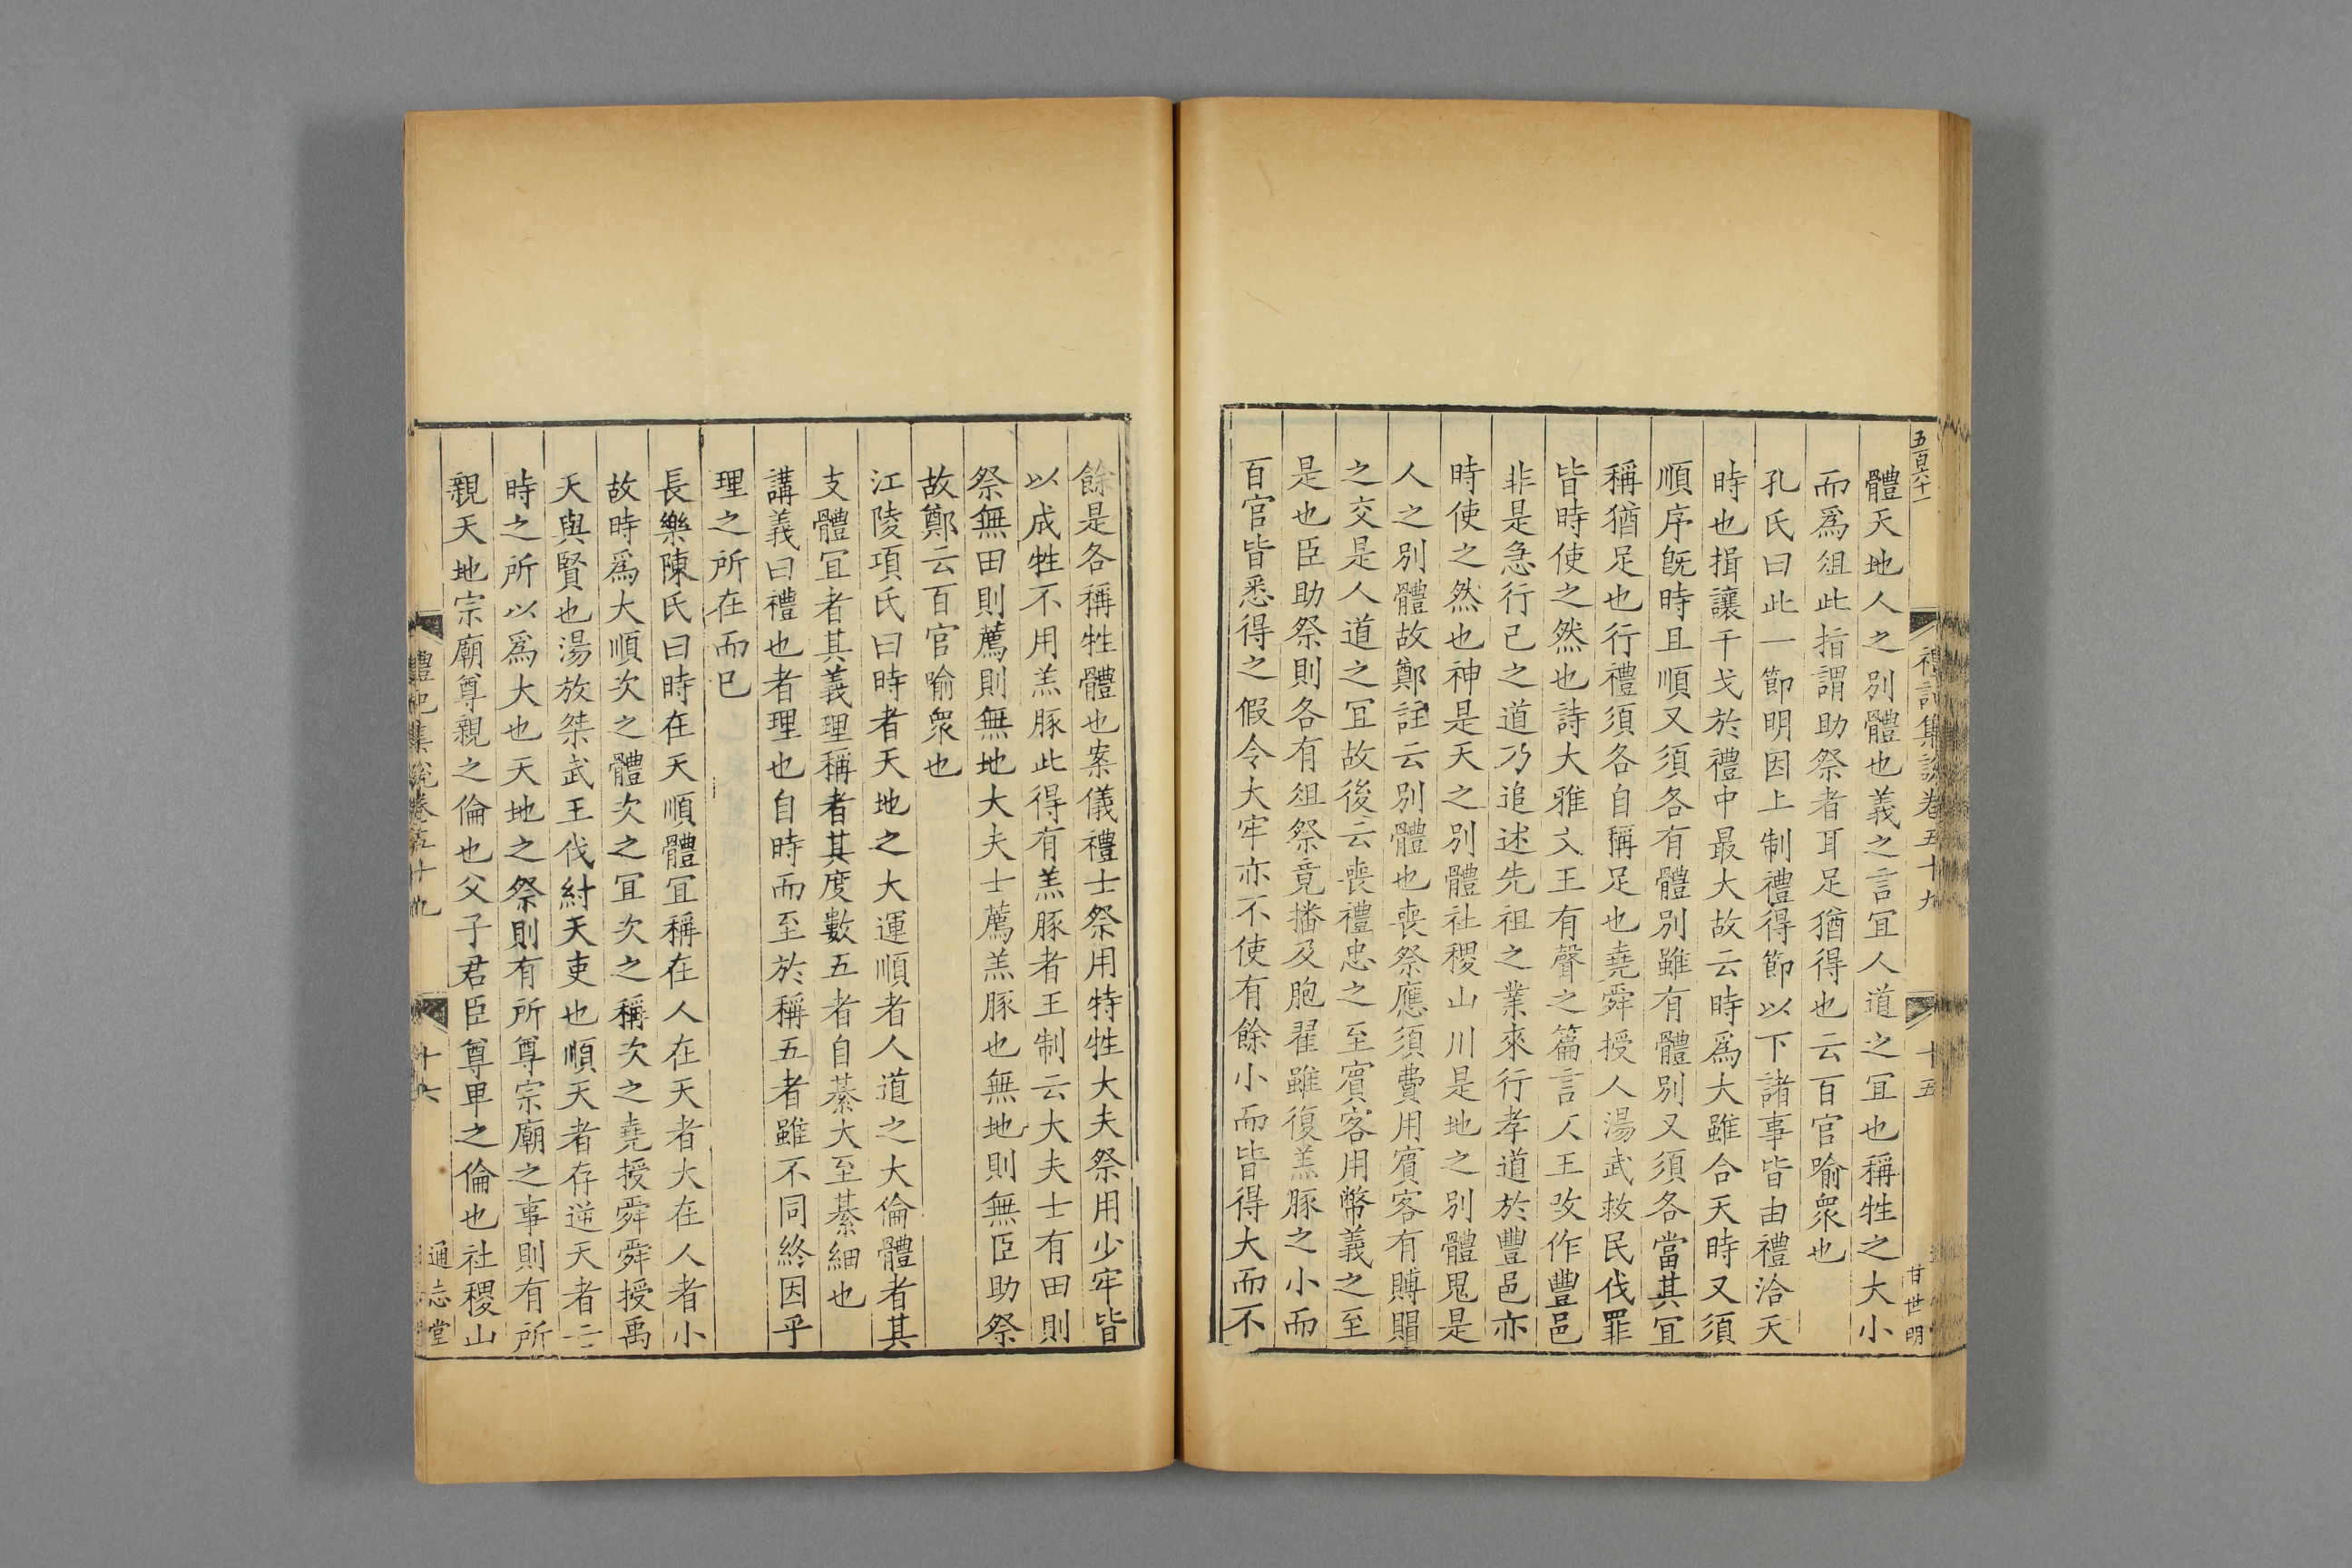 五百六十一
禮記集說卷五十九
十五
甘世明
體天地人之別體也義之言宜人道之宜也稱牲之大小
而爲俎此指謂助祭者耳足猶得也云百官喻衆也
孔氏曰此一節明因上制禮得節以下諸事皆由禮洽天
時也揖讓干戈於禮中最大故云時爲大雖合天時又須
順序旣時且順又須各有體別雖有體別又須各當其宜
稱猶足也行禮須各自稱足也堯舜授人湯武救民伐罪
皆時使之然也詩大雅文王有聲之篇言文王改作豐邑
非是急行己之道乃追述先祖之業來行孝道於豐邑亦
時使之然也神是天之別體社稷山川是地之別體鬼是
人之別體故鄭註云別體也喪祭應須費用賓客有賻賵
之交是人道之宜故後云喪禮忠之至賓客用幣義之至
是也臣助祭則各有俎祭竟播及胞翟雖復羔豚之小而
百官皆悉得之假令大牢亦不使有餘小而皆得大而不
餘是各稱牲體也案儀禮士祭用特牲大夫祭用少牢皆
以成牲不用羔豚此得有羔豚者王制云大夫士有田則
祭無田則薦則無地大夫士薦羔豚也無地則無臣助祭
故鄭云百官喻衆也
江陵項氏曰時者天地之大運順者人道之大倫體者其
支體宜者其義理稱者其度數五者自綦大至綦細也
講義曰禮也者理也自時而至於稱五者雖不同終因乎
理之所在而已
長樂陳氏曰時在天順體宜稱在人在天者大在人者小
故時爲大順次之體次之宜次之稱次之堯授舜舜授禹
天與賢也湯放桀武王伐紂天吏也順天者存逆天者亡
時之所以爲大也天地之祭則有所尊宗廟之事則有所
親天地宗廟尊親之倫也父子君臣尊卑之倫也社稷山
禮記集說卷五十九
十六
通志堂